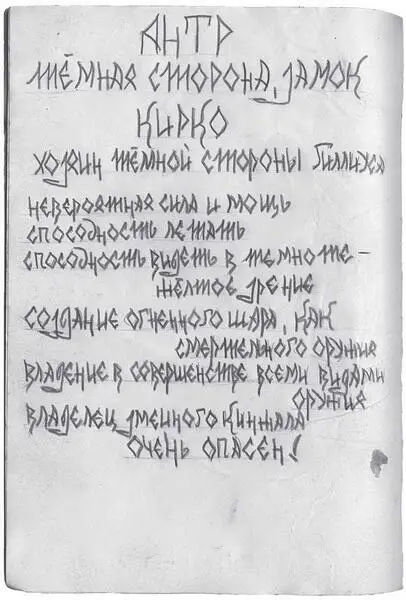 АНТР
ТЁМНАЯ СТОРОНА, ЗАМОК
КИРКО
ХОЗЯИН ТЁМНОЙ СТОРОНЫ ГИЛЛИУСА
НЕВЕРОЯТНАЯ СИЛА И МОЩЬ
СПОСОБНОСТЬ ЛЕТАТЬ
СПОСОБНОСТЬ ВИДЕТЬ В ТЕМНОТЕ –
ЖЁЛТОЕ ЗРЕНИЕ
СОЗДАНИЕ ОГНЕННОГО ШАРА, КАК
СМЕРТЕЛЬНОГО ОРУЖИЯ
ВЛАДЕНИЕ В СОВЕРШЕНСТВЕ ВСЕМИ ВИДАМИ
ОРУЖИЯ
ВЛАДЕЛЕЦ ЗМЕИНОГО КИНЖАЛА
ОЧЕНЬ ОПАСЕН!